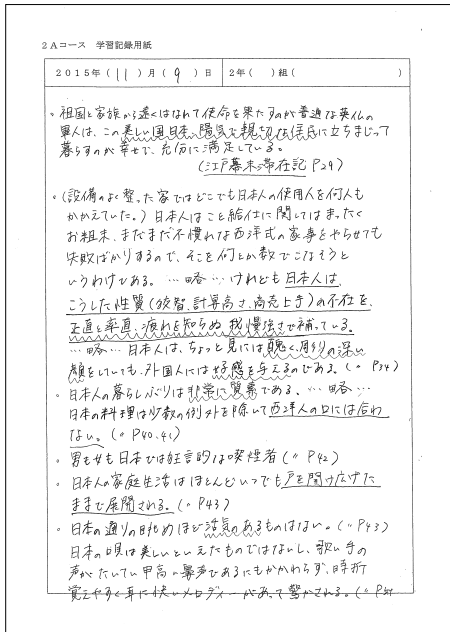 2Aコース 学習記録用紙
2015年(11)月(9)日 2年( )組( )
。祖国と家族から遠くはなれて使命を果たすのが普通な英仏の
軍人は、この美しい国日本、陽気で親切な住民に立ちまじって
暮らすのが幸せで、充分に満足している。
(江戸幕末滞在記 P29)
。(設備のよく整った家ではどこでも日本人の使用人を何人も
かかえていた。)日本人はこと給仕に関してはまったく
お粗末、まだまだ不慣れな西洋式の家事をやらせても
失敗ばかりするので、そこを何とか数でこなそうと
いうわけである。…略…けれども日本人は、
こうした性質(狡智、計算高さ、商売上手)の不在を、
正直と率直、疲れを知らぬ我慢強さで補っている。
…略…日本人は、ちょっと見には醜く、周りの深い
顔をしていても、外国人には好感を与えるのである。(〃P34)
。日本人の暮らしぶりは非常に質素である、…略…
日本の料理は少数の例外を除いて西洋人の口には合わ
ない。(〃P40.41)
。男も女も日本では狂言的な喫煙者(〃P42)
。日本人の家庭生活はほとんどいつでも戸を開け広げた
ままで展開される。(〃P43)
。日本の通りの眺めほど活気のあるものはない。(〃P43)
日本の唄は美しいといえたものではないし、歌い手の
声がたいてい甲高い裏声であるにもかかわらず、時折
覚えやすく耳に快いメロディーがあって驚かされる。(〃P51